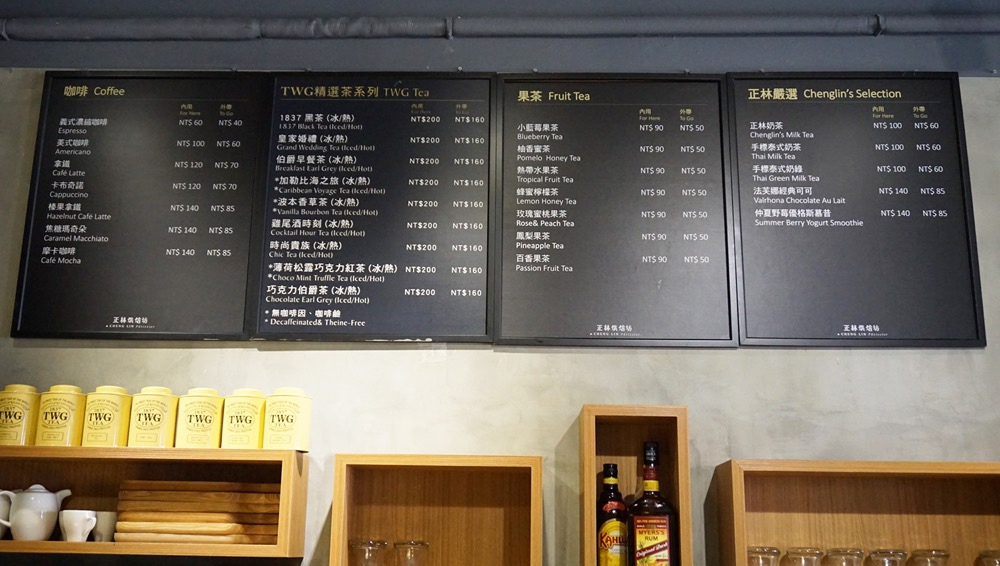 咖啡 Coffee
內用 外帶
For Here To Go
義式濃縮咖啡 NT$ 60 NT$ 40
Espresso
美式咖啡 NT$ 100 NT$ 60
Americano
拿鐵 NT$ 120 NT$ 70
Café Latte
卡布奇諾 NT$ 120 NT$ 70
Cappuccino
榛果拿鐵 NT$ 140 NT$ 85
Hazelnut Café Latte
焦糖瑪奇朵 NT$ 140 NT$ 85
Caramel Macchiato
摩卡咖啡 NT$ 140 NT$ 85
Café Mocha
正林烘焙坊
CHENG LIN Pâtissier
TWG精選茶系列 TWG Tea
內用 外帶
For Here To Go
1837 黑茶 (冰/熱) NT$200 NT$160
1837 Black Tea (Iced/Hot)
皇家婚禮 (冰/熱) NT$200 NT$160
Grand Wedding Tea (Iced/Hot)
伯爵早餐茶 (冰/熱) NT$200 NT$160
Breakfast Earl Grey (Iced/Hot)
*加勒比海之旅 (冰/熱) NT$200 NT$160
*Caribbean Voyage Tea (Iced/Hot)
*波本香草茶 (冰/熱) NT$200 NT$160
*Vanilla Bourbon Tea (Iced/Hot)
雞尾酒時刻 (冰/熱) NT$200 NT$160
Cocktail Hour Tea (Iced/Hot)
時尚貴族 (冰/熱) NT$200 NT$160
Chic Tea (Iced/Hot)
*薄荷松露巧克力紅茶 (冰/熱) NT$200 NT$160
*Choco Mint Truffle Tea (Iced/Hot)
巧克力伯爵茶 (冰/熱) NT$200 NT$160
Chocolate Earl Grey (Iced/Hot)
* 無咖啡因、咖啡鹼
* Decaffeinated& Theine-Free
果茶 Fruit Tea
內用 外帶
For Here To Go
小藍莓果茶 NT$ 90 NT$ 50
Blueberry Tea
柚香蜜茶 NT$ 90 NT$ 50
Pomelo Honey Tea
熱帶水果茶 NT$ 90 NT$ 50
Tropical Fruit Tea
蜂蜜檸檬茶 NT$ 90 NT$ 50
Lemon Honey Tea
玫瑰蜜桃果茶 NT$ 90 NT$ 50
Rose& Peach Tea
鳳梨果茶 NT$ 90 NT$ 50
Pineapple Tea
百香果茶 NT$ 90 NT$ 50
Passion Fruit Tea
正林烘焙坊
CHENG LIN Pâtissier
正林嚴選 Chenglin's Selection
內用 外帶
For Here To Go
正林奶茶 NT$ 100 NT$ 60
Chenglin's Milk Tea
手標泰式奶茶 NT$ 100 NT$ 60
Thai Milk Tea
手標泰式奶綠 NT$ 100 NT$ 60
Thai Green Milk Tea
法芙娜經典可可 NT$ 140 NT$ 85
Valrhona Chocolate Au Lait
仲夏野莓優格斯慕昔 NT$ 140 NT$ 85
Summer Berry Yogurt Smoothie
正林烘焙坊
CHENG LIN Pâtissier
TWG
TEA
TWG
TEA
TWG
TEA
TWG
TEA
TWG
TEA
TWG
TEA
TWG
TEA
MYERS'S
RUM
Original Dark